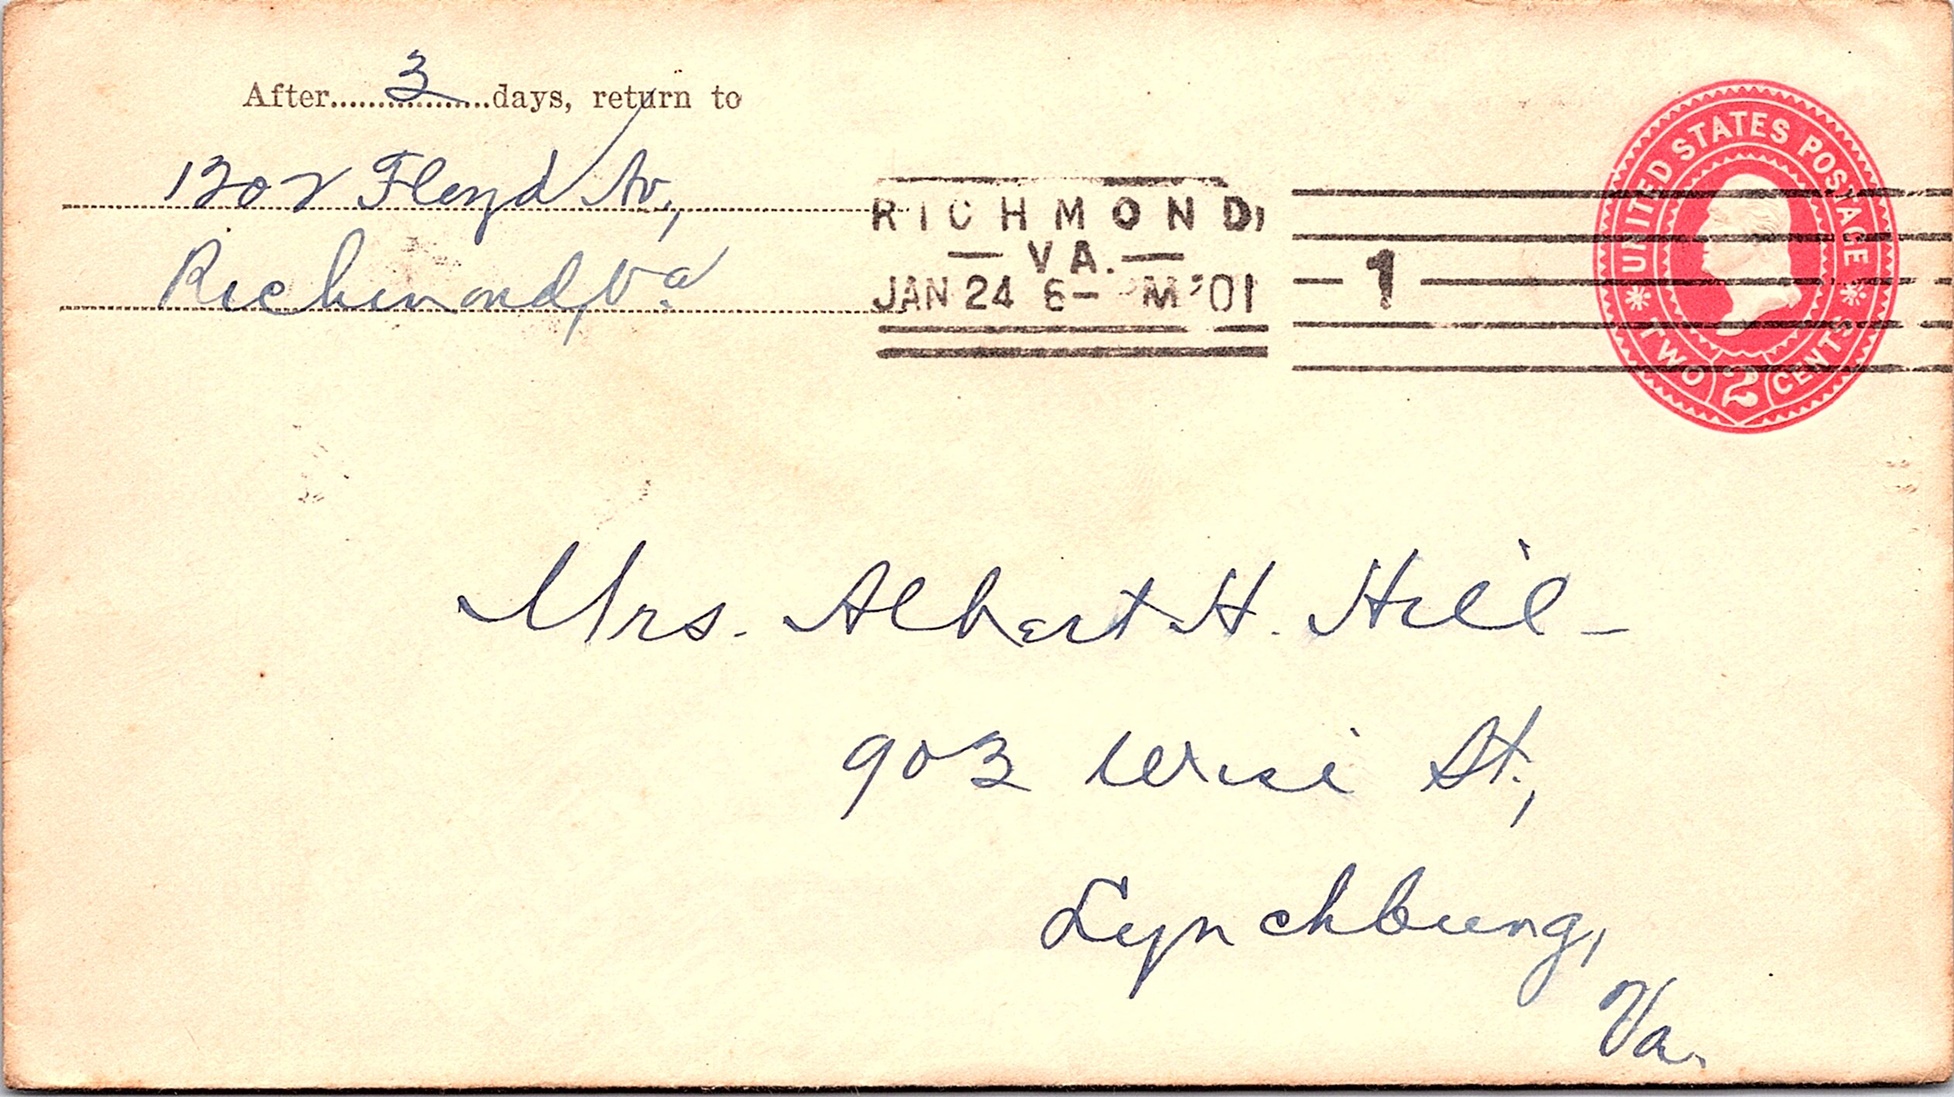 After.....3.....days, return to
1202 Floyd Av,
Richmond, Va
RICHMOND,
— VA. —
JAN 24 6- M '01
1
UNITED STATES POSTAGE
TWO 2 CENTS
Mrs. Albert H. Hill -
903 Wise St.,
Lynchburg,
Va.